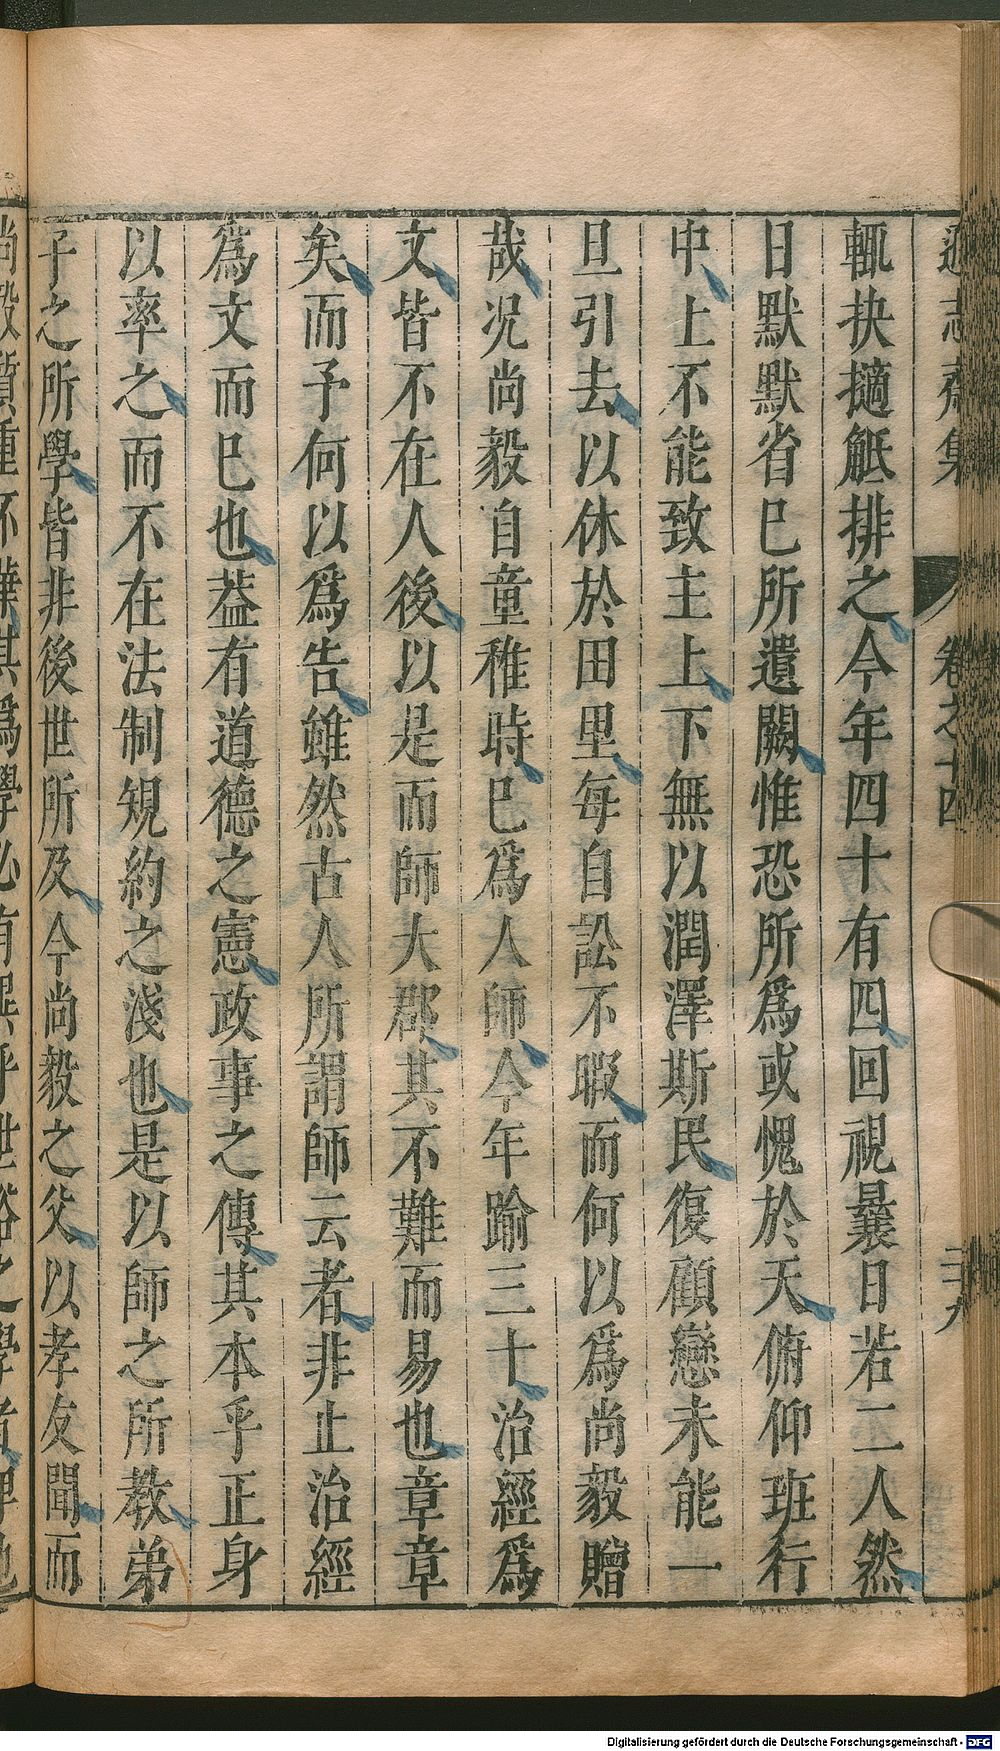 遜志齋集 卷之十四 二十九
輒抉擿觝排之今年四十有四回視曩日若二人然
日默默省已所遺闕惟恐所爲或愧於天俯仰班行
中上不能致主上下無以潤澤斯民復顧戀未能一
旦引去以休於田里每自訟不暇而何以爲尚毅贈
哉况尚毅自童稚時已爲人師今年踰三十治經爲
文皆不在人後以是而師大郡其不難而易也章章
矣而予何以爲告雖然古人所謂師云者非止治經
爲文而已也葢有道德之憲政事之傳其本乎正身
以率之而不在法制規約之淺也是以師之所教弟
子之所學皆非後世所及今尚毅之父以孝友聞而
尚毅質重不華其爲學必有異乎世俗之學者
Digitalisierung gefördert durch die Deutsche Forschungsgemeinschaft - DFG